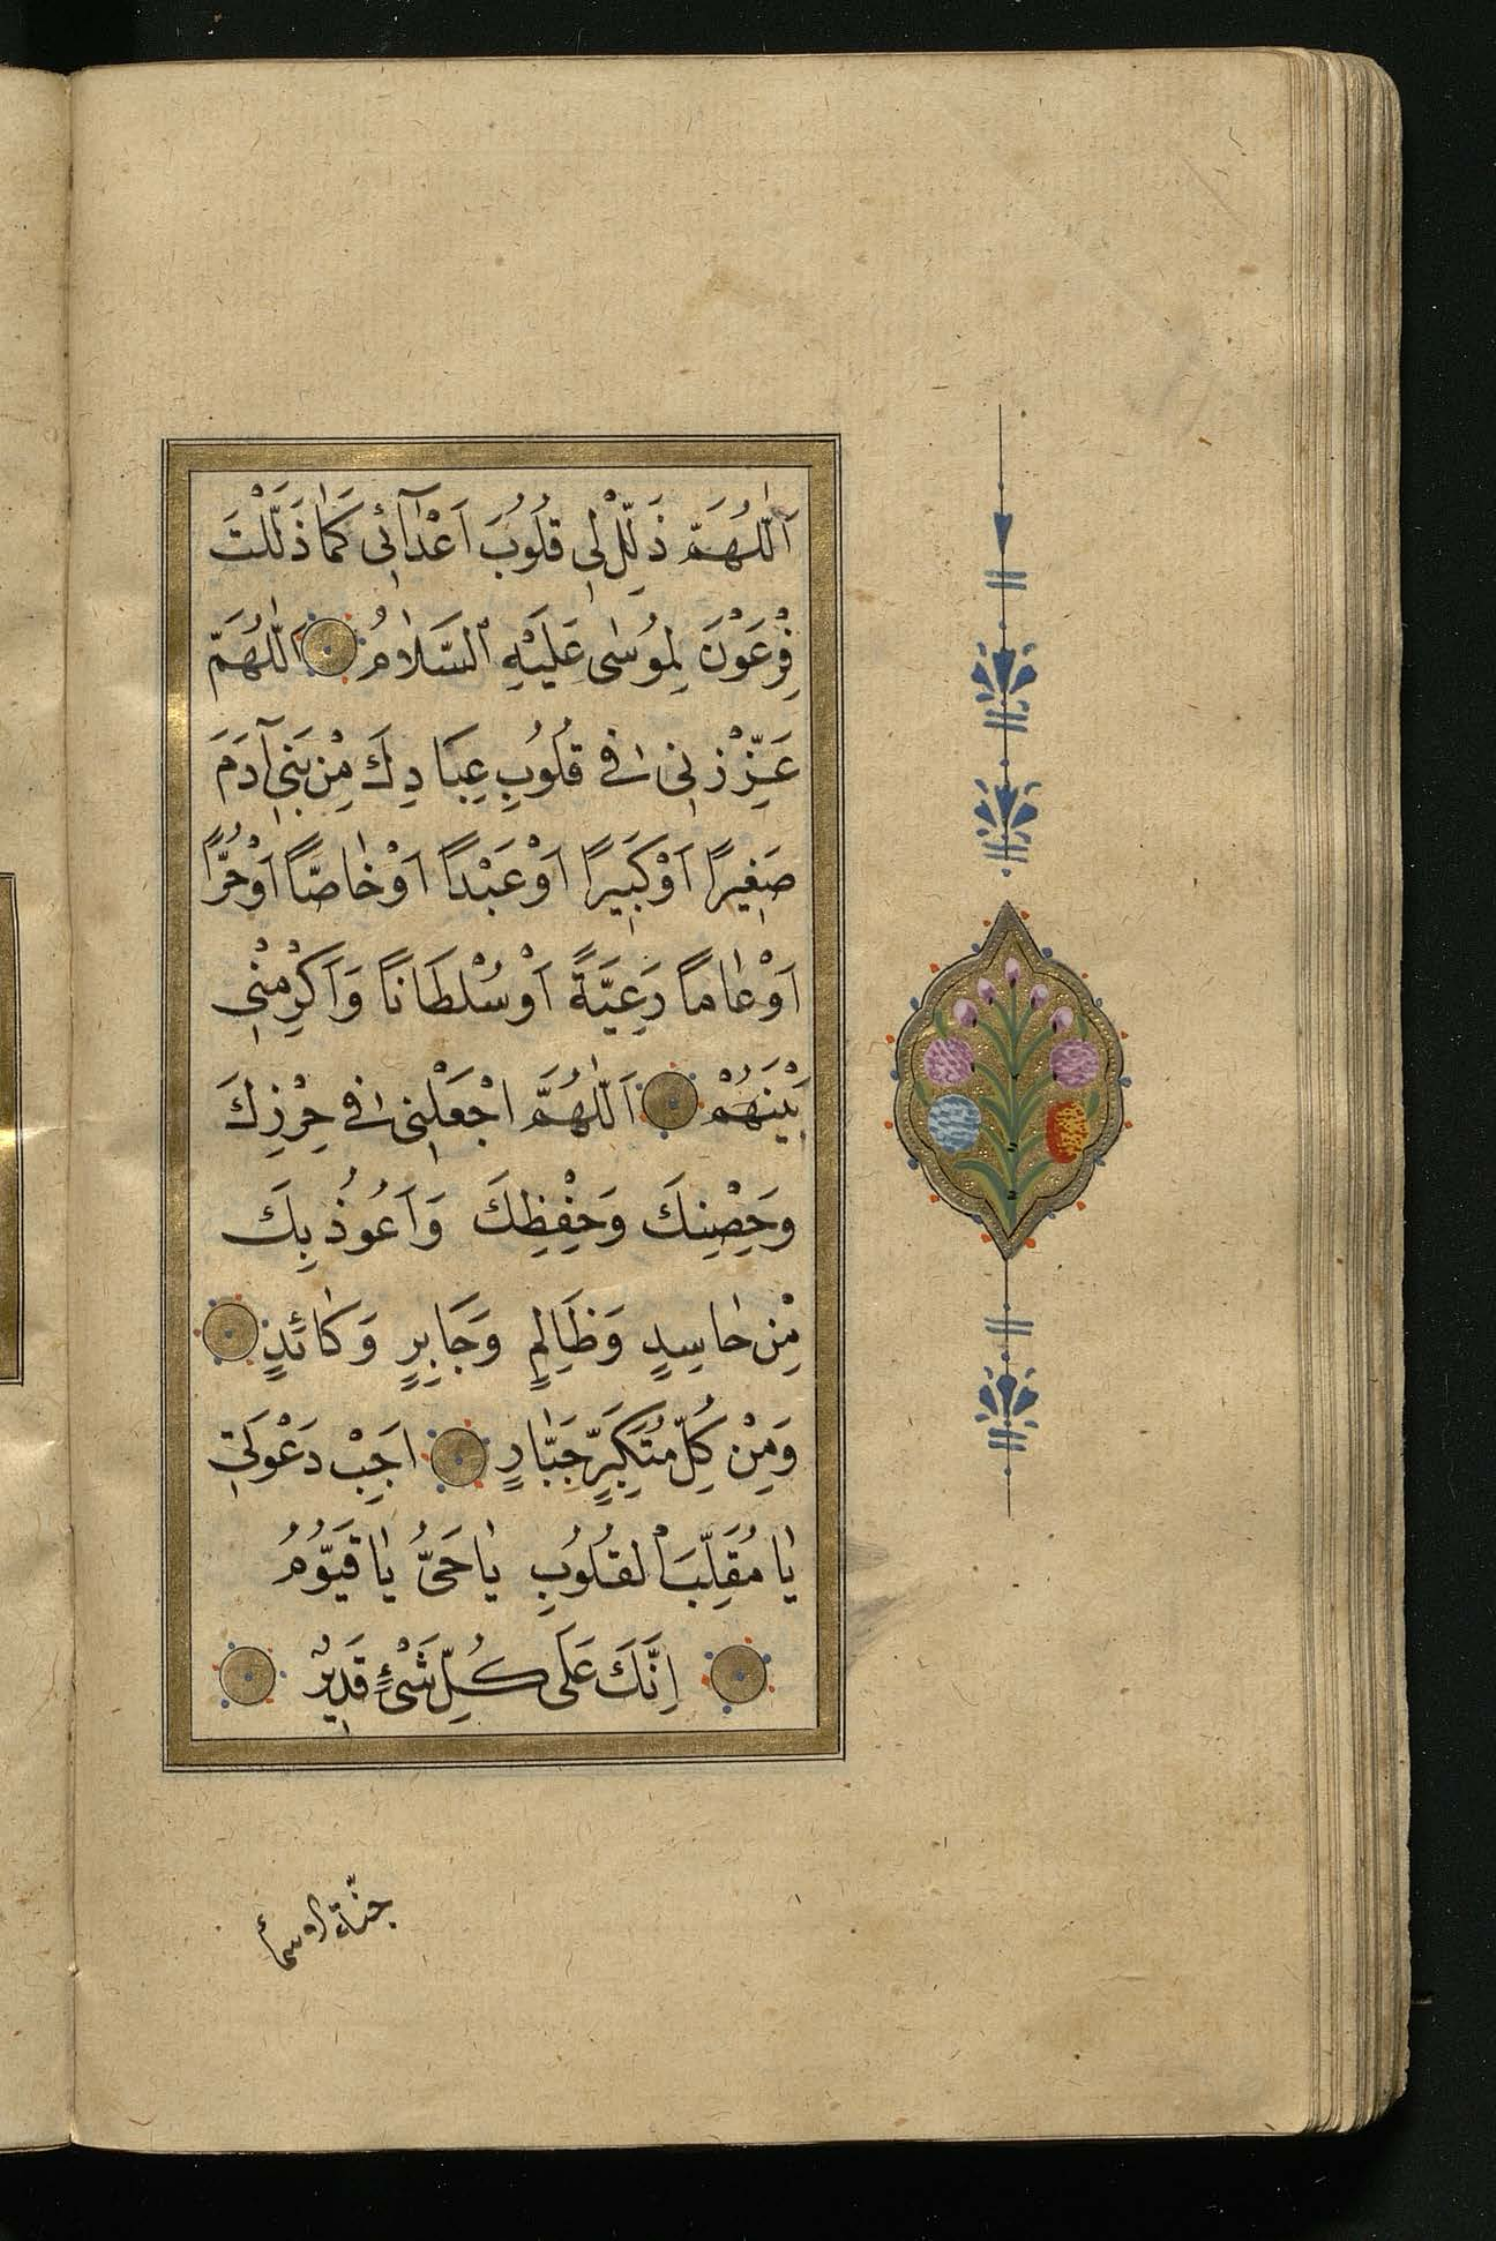 اَللّٰهُمَّ ذَلِّلْ لِى قُلُوبَ اَعْدَآئِى كَمَا ذَلَّلْتَ
فِرْعَوْنَ لِمُوسٰى عَلَيْهِ السَّلَامُ اَللّٰهُمَّ
عَزِّزْنِى فِى قُلُوبِ عِبَادِكَ مِنْ بَنِى آدَمَ
صَغِيرًا اَوْ كَبِيرًا اَوْ عَبْدًا اَوْ خَاصًّا اَوْ حُرًّا
اَوْ عَامًا رَعِيَّةً اَوْ سُلْطَانًا وَاَكْرِمْنِى
بَيْنَهُمْ اَللّٰهُمَّ اجْعَلْنِى فِى حِرْزِكَ
وَحِصْنِكَ وَحِفْظِكَ وَاَعُوذُ بِكَ
مِنْ حَاسِدٍ وَظَالِمٍ وَجَابِرٍ وَكَائِدٍ
وَمِنْ كُلِّ مُتَكَبِّرٍ جَبَّارٍ اَجِبْ دَعْوَتِى
يَا مُقَلِّبَ الْقُلُوبِ يَا حَىُّ يَا قَيُّومُ
اِنَّكَ عَلَى كُلِّ شَىْءٍ قَدِيرٌ